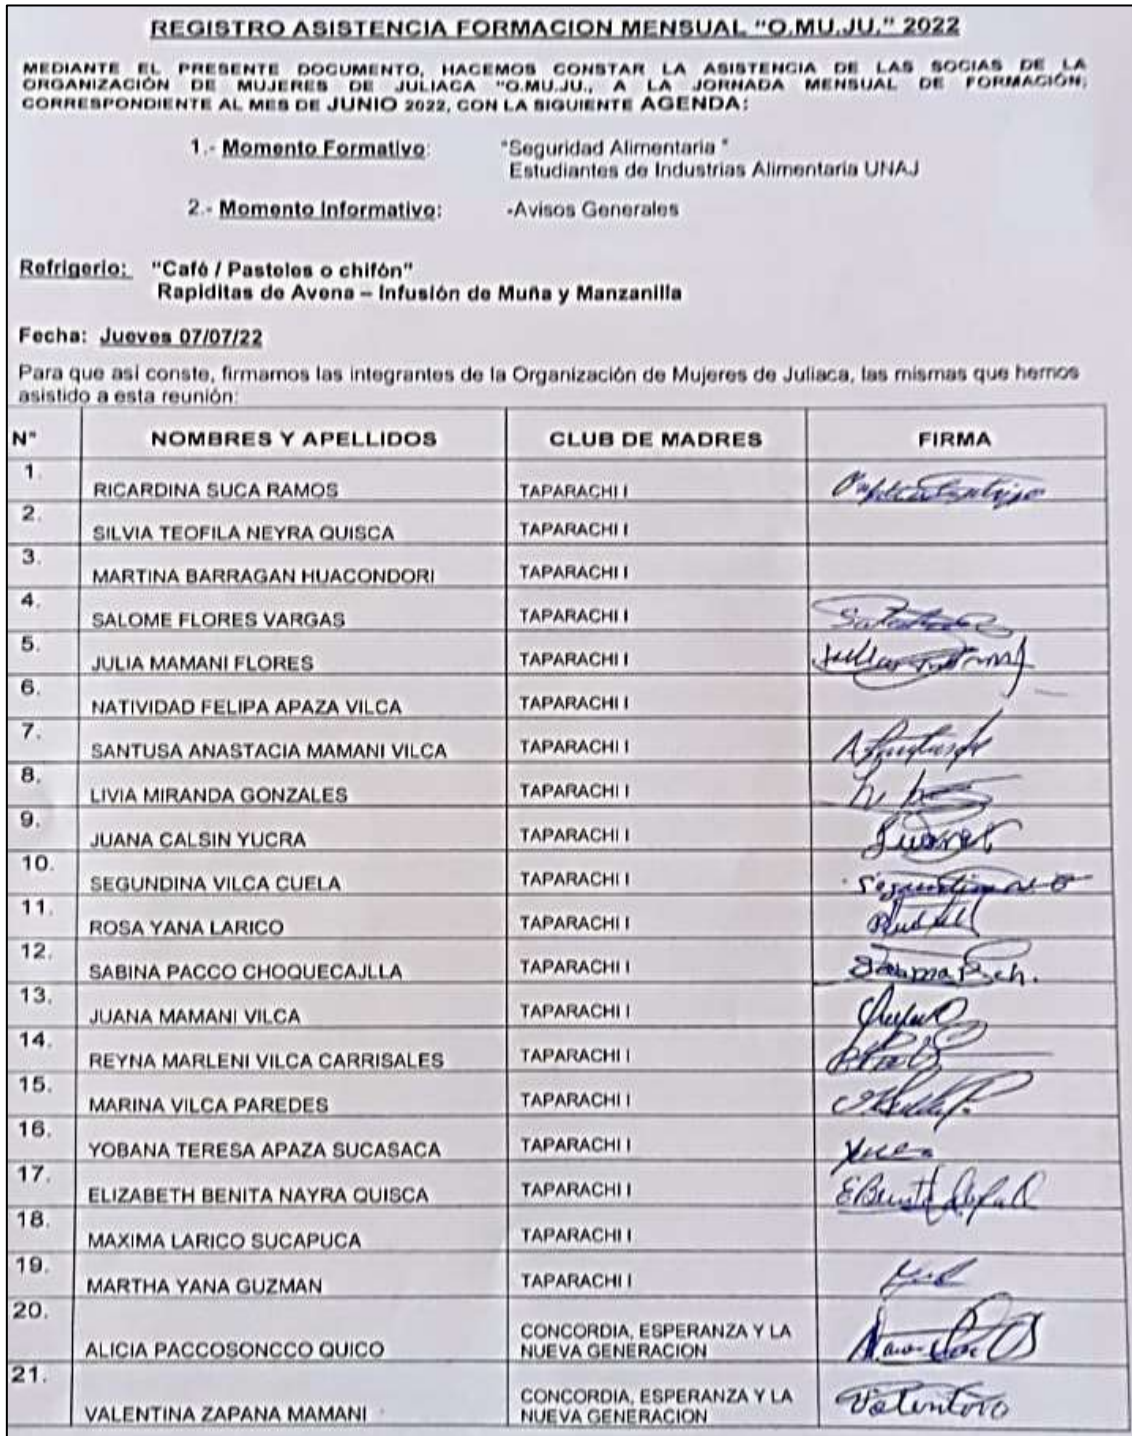 REGISTRO ASISTENCIA FORMACION MENSUAL "O.MU.JU." 2022
MEDIANTE EL PRESENTE DOCUMENTO, HACEMOS CONSTAR LA ASISTENCIA DE LAS SOCIAS DE LA
ORGANIZACIÓN DE MUJERES DE JULIACA "O.MU.JU., A LA JORNADA MENSUAL DE FORMACIÓN,
CORRESPONDIENTE AL MES DE JUNIO 2022, CON LA SIGUIENTE AGENDA:
1.- Momento Formativo: "Seguridad Alimentaria "
Estudiantes de Industrias Alimentaria UNAJ
2.- Momento Informativo: -Avisos Generales
Refrigerio: "Café / Pasteles o chifón"
Rapiditas de Avena – Infusión de Muña y Manzanilla
Fecha: Jueves 07/07/22
Para que asi conste, firmamos las integrantes de la Organización de Mujeres de Juliaca, las mismas que hemos
asistido a esta reunión:
N° NOMBRES Y APELLIDOS CLUB DE MADRES FIRMA
1. RICARDINA SUCA RAMOS TAPARACHI I
2. SILVIA TEOFILA NEYRA QUISCA TAPARACHI I
3. MARTINA BARRAGAN HUACONDORI TAPARACHI I
4. SALOME FLORES VARGAS TAPARACHI I
5. JULIA MAMANI FLORES TAPARACHI I
6. NATIVIDAD FELIPA APAZA VILCA TAPARACHI I
7. SANTUSA ANASTACIA MAMANI VILCA TAPARACHI I
8. LIVIA MIRANDA GONZALES TAPARACHI I
9. JUANA CALSIN YUCRA TAPARACHI I
10. SEGUNDINA VILCA CUELA TAPARACHI I
11. ROSA YANA LARICO TAPARACHI I
12. SABINA PACCO CHOQUECAJLLA TAPARACHI I
13. JUANA MAMANI VILCA TAPARACHI I
14. REYNA MARLENI VILCA CARRISALES TAPARACHI I
15. MARINA VILCA PAREDES TAPARACHI I
16. YOBANA TERESA APAZA SUCASACA TAPARACHI I
17. ELIZABETH BENITA NAYRA QUISCA TAPARACHI I
18. MAXIMA LARICO SUCAPUCA TAPARACHI I
19. MARTHA YANA GUZMAN TAPARACHI I
20. ALICIA PACCOSONCCO QUICO CONCORDIA, ESPERANZA Y LA
NUEVA GENERACION
21. VALENTINA ZAPANA MAMANI CONCORDIA, ESPERANZA Y LA
NUEVA GENERACION